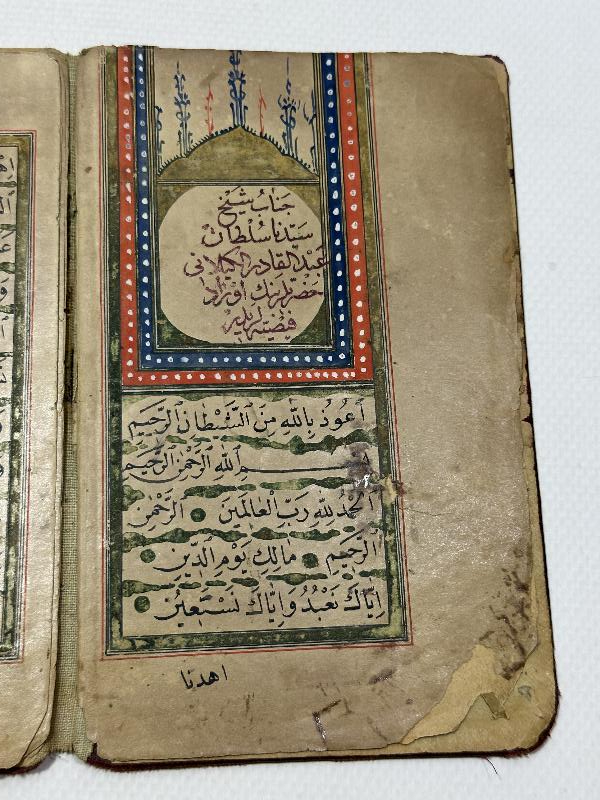 جناب شيخ
سيدنا سلطان
عبد القادر الكيلاني
حضرتلرينك اوراد
فيضيه لريدر
اَعُوذُ بِاللهِ مِنَ الشَّيْطَانِ الرَّجِيمِ
بِسْمِ اللهِ الرَّحْمٰنِ الرَّحِيمِ
اَلْحَمْدُ لِلهِ رَبِّ الْعَالَمِينَ الرَّحْمٰنِ
الرَّحِيمِ مَالِكِ يَوْمِ الدِّينِ
اِيَّاكَ نَعْبُدُ وَاِيَّاكَ نَسْتَعِينُ
اهدنا